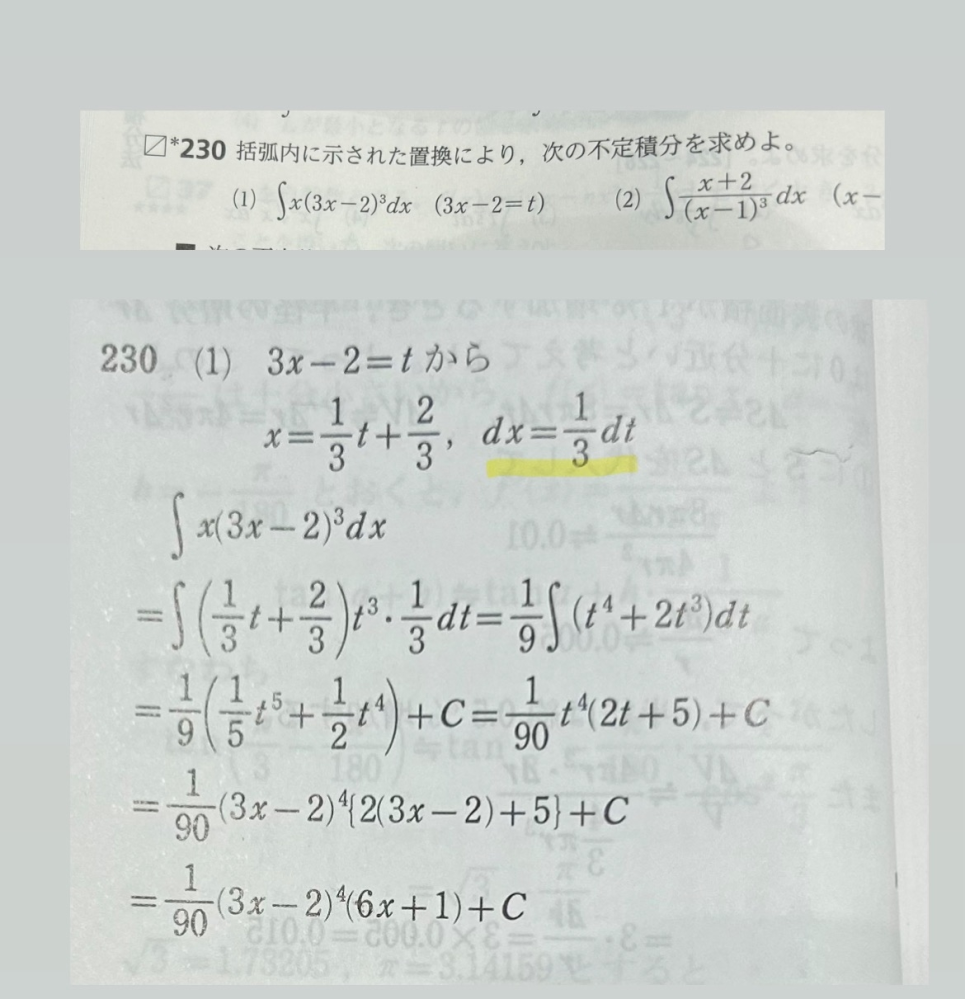 *230 括弧内に示された置換により，次の不定積分を求めよ。
(1) ∫x(3x−2)³dx (3x−2=t) (2) ∫(x+2)/(x−1)³ dx (x−
230 (1) 3x−2=t から
x=1/3 t+2/3, dx=1/3 dt
∫x(3x−2)³dx
=∫(1/3 t+2/3)t³·1/3 dt=1/9∫(t⁴+2t³)dt
=1/9(1/5 t⁵+1/2 t⁴)+C=1/90 t⁴(2t+5)+C
=1/90(3x−2)⁴{2(3x−2)+5}+C
=1/90(3x−2)⁴(6x+1)+C